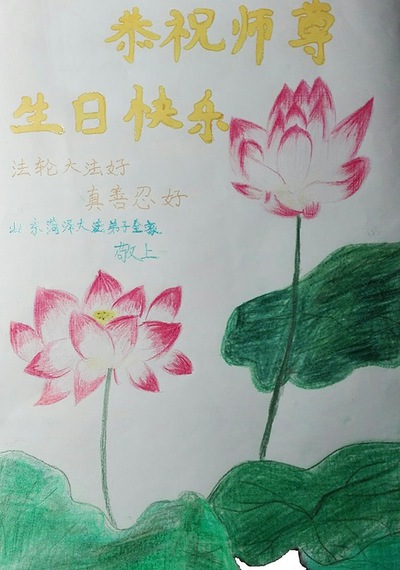 恭祝师尊
生日快乐
法轮大法好
真善忍好
山东菏泽大法弟子全家
敬上